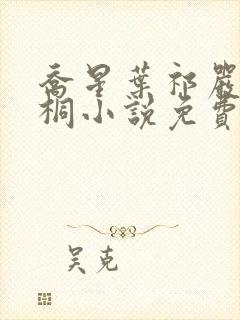 喬星葉祁嚴
桐小說免費
吳克